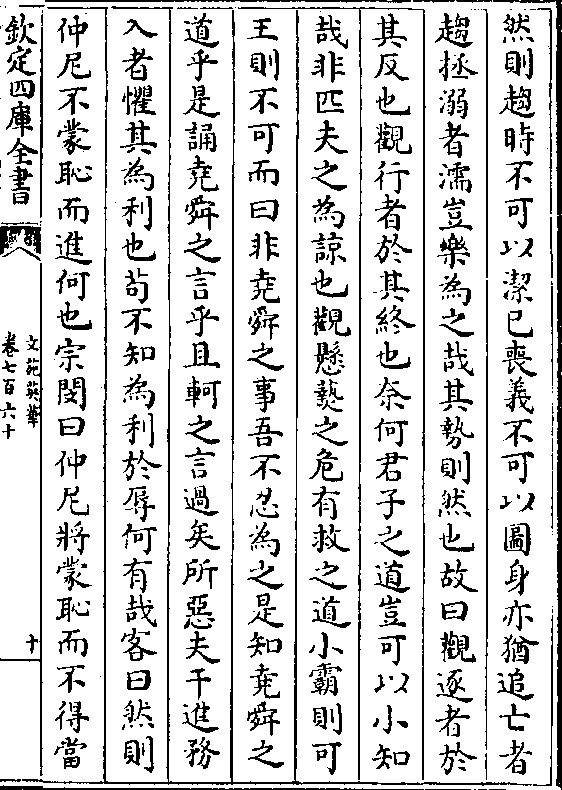 然則趨時不可以潔已喪義不可以圖身亦猶追亡者
趨拯溺者濡豈樂為之哉其勢則然也故曰觀逐者於
其反也觀行者於其終也奈何君子之道豈可以小知
哉非匹夫之為諒也觀懸㷫之危有救之道小霸則可
王則不可而曰非堯舜之事吾不忍為之是知堯舜之
道乎是誦堯舜之言乎且軻之言過矣所惡夫干進務
入者懼其為利也茍不知為利於辱何有哉客曰然則
仲尼不蒙恥而進何也宗閔曰仲尼將蒙恥而不得當
欽定四庫全書
文苑英華
卷七百六十
十